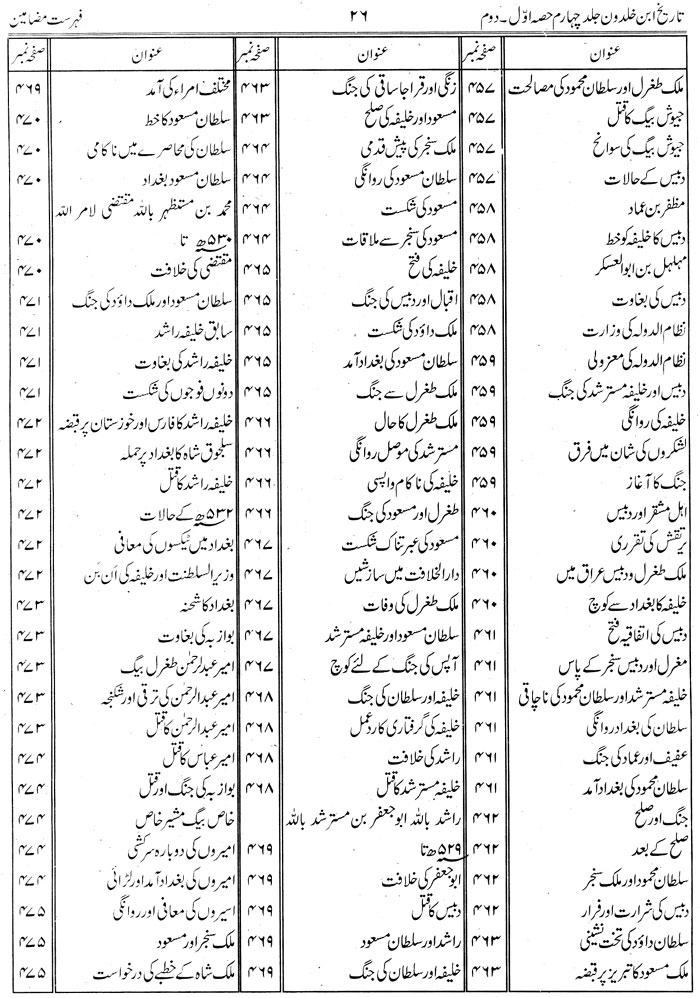 تاریخ ابن خلدون جلد چہارم حصہ اوّل۔ دوم ۲۶ فہرست مضامین
عنوان صفحہ نمبر
ملک طغرل اور سلطان محمود کی مصالحت ۴۵۷
جیوش بیگ کا قتل ۴۵۷
جیوش بیگ کی سوانح ۴۵۷
دبیس کے حالات ۴۵۷
مظفر بن عماد ۴۵۸
دبیس کا خلیفہ کو خط ۴۵۸
مہلہل بن ابوالعسکر ۴۵۸
دبیس کی بغاوت ۴۵۸
نظام الدولہ کی وزارت ۴۵۸
نظام الدولہ کی معزولی ۴۵۹
دبیس اور خلیفہ مسترشد کی جنگ ۴۵۹
خلیفہ کی روانگی ۴۵۹
لشکروں کی شان میں فرق ۴۵۹
جنگ کا آغاز ۴۵۹
اہل مشقر اور دبیس ۴۶۰
یرتقش کی تقرری ۴۶۰
ملک طغرل ودبیس عراق میں ۴۶۰
خلیفہ کا بغداد سے کوچ ۴۶۰
دبیس کی اتفاقیہ فتح ۴۶۱
مغرل اور دبیس سنجر کے پاس ۴۶۱
خلیفہ مسترشد اور سلطان محمود کی ناچاقی ۴۶۱
سلطان کی بغداد روانگی ۴۶۱
عفیف اور عماد کی جنگ ۴۶۱
سلطان محمود کی بغداد آمد ۴۶۱
جنگ اور صلح ۴۶۲
صلح کے بعد ۴۶۲
سلطان محمود اور ملک سنجر ۴۶۲
دبیس کی شرارت اور فرار ۴۶۲
سلطان داؤد کی تخت نشینی ۴۶۳
ملک مسعود کا تبریز پر قبضہ ۴۶۳
عنوان صفحہ نمبر
زنگی اور قراجا ساقی کی جنگ ۴۶۳
مسعود اور خلیفہ کی صلح ۴۶۳
ملک سنجر کی پیش قدمی ۴۶۴
سلطان مسعود کی روانگی ۴۶۴
مسعود کی شکست ۴۶۴
مسعود کی سنجر سے ملاقات ۴۶۴
خلیفہ کی فتح ۴۶۵
اقبال اور دبیس کی جنگ ۴۶۵
ملک داؤد کی شکست ۴۶۵
سلطان مسعود کی بغداد آمد ۴۶۵
ملک طغرل سے جنگ ۴۶۵
ملک طغرل کا حال ۴۶۶
مسترشد کی موصل روانگی ۴۶۶
خلیفہ کی ناکام واپسی ۴۶۶
طغرل اور مسعود کی جنگ ۴۶۶
مسعود کی عبرتناک شکست ۴۶۷
دارالخلافت میں سازشیں ۴۶۷
ملک طغرل کی وفات ۴۶۷
سلطان مسعود اور خلیفہ مسترشد ۴۶۷
آپس کی جنگ کے لئے کوچ ۴۶۷
خلیفہ اور سلطان کی جنگ ۴۶۸
خلیفہ کی گرفتاری کا ردعمل ۴۶۸
راشد کی خلافت ۴۶۸
خلیفہ مسترشد کا قتل ۴۶۸
راشد باللہ ابو جعفر بن مسترشد باللہ
۵۲۹ھ تا ۴۶۹
ابو جعفر کی خلافت ۴۶۹
دبیس کا قتل ۴۶۹
راشد اور سلطان مسعود ۴۶۹
خلیفہ اور سلطان کی جنگ ۴۶۹
عنوان صفحہ نمبر
مختلف امراء کی آمد ۴۶۹
سلطان مسعود کا خط ۴۷۰
سلطان کی محاصرے میں ناکامی ۴۷۰
سلطان مسعود بغداد ۴۷۰
محمد بن مستظہر باللہ مقتضی لامر اللہ
۵۳۰ھ تا ۴۷۰
مقتضی کی خلافت ۴۷۰
سلطان مسعود اور ملک داؤد کی جنگ ۴۷۱
سابق خلیفہ راشد ۴۷۱
خلیفہ راشد کی بغاوت ۴۷۱
دونوں فوجوں کی شکست ۴۷۱
خلیفہ راشد کا فارس اور خوزستان پر قبضہ ۴۷۲
سلجوق شاہ کا بغداد پر حملہ ۴۷۲
خلیفہ راشد کا قتل ۴۷۲
۵۳۲ھ کے حالات ۴۷۲
بغداد میں ٹیکسوں کی معافی ۴۷۲
وزیر السلطنت اور خلیفہ کی اَن بَن ۴۷۲
بغداد کا شحنہ ۴۷۳
بوازبہ کی بغاوت ۴۷۳
امیر عبدالرحمٰن طغرل بیگ ۴۷۳
امیر عبدالرحمٰن کی ترقی اور شکنجہ ۴۷۳
امیر عبدالرحمٰن کا قتل ۴۷۳
امیر عباس کا قتل ۴۷۴
بوازبہ کی جنگ اور قتل ۴۷۴
خاص بیگ مشیر خاص ۴۷۴
امیروں کی دوبارہ سرکشی ۴۷۴
امیروں کی بغداد آمد اور لڑائی ۴۷۴
اسیروں کی معافی اور روانگی ۴۷۵
ملک سنجر اور مسعود ۴۷۵
ملک شاہ کے خطبے کی درخواست ۴۷۵